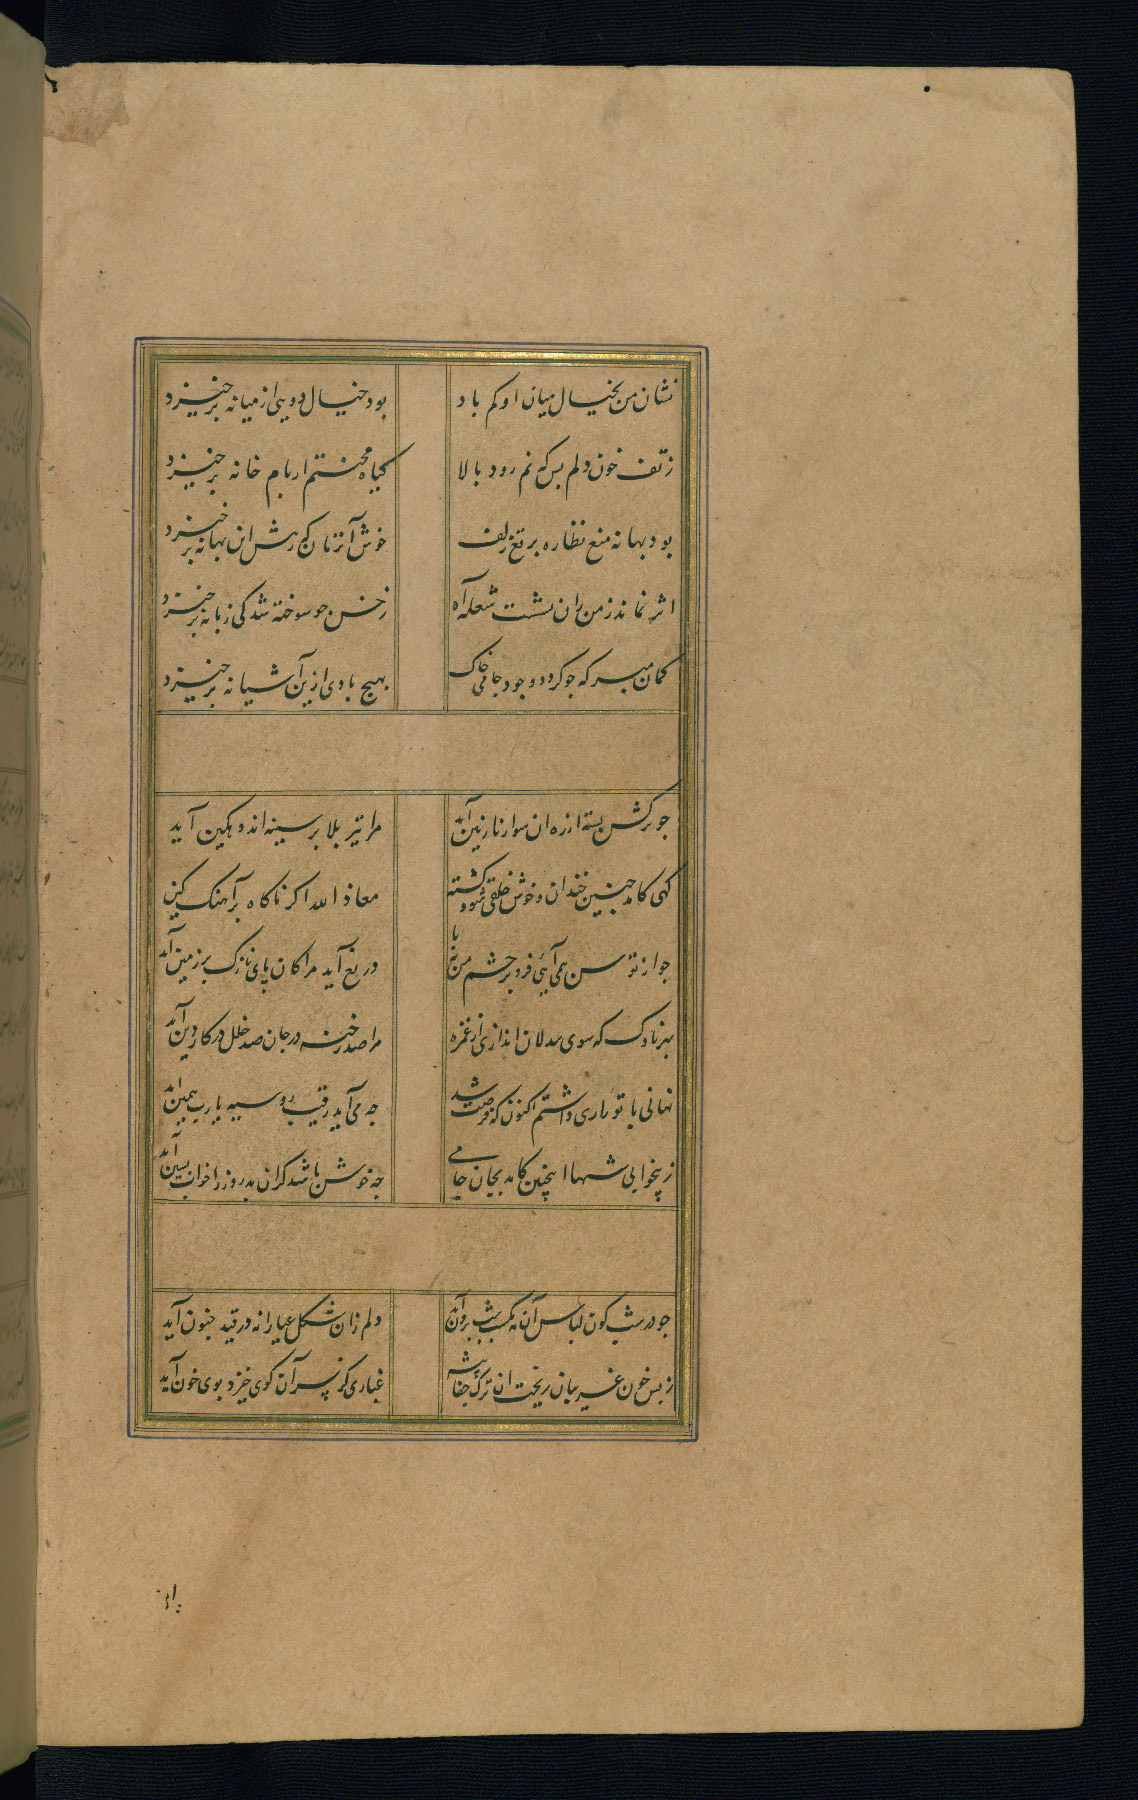 نشان من بخیال میان او کم باد بود خیال دویی از میانه برخیزد
ز تف خون دلم بس که نم رود بالا کیاه محنتم از بام خانه برخیزد
بود بهانه منع نظاره برقع زلف خوش آنزمان که ز پیش این بهانه برخیزد
اثر نماند ز من شعله آه ز خس جو سوخته شد کی زبانه برخیزد
کمان مبر که جو کرد وجود جامی خاک بهیج بادی ازین آشیانه برخیزد
جو ترکش بسته از ره ان سوار نازنین آید مرا تیر بلا بر سینه اندوهکین آید
کهی کامد جنین خندان و خوش خلقی شود کشته معاذ الله اکر ناکاه بر آهنک کین
جو از توسن همی آیی فرود بر جشم من نه پا دریغ آید مرا کان پای نازک بر زمین آید
بهر ناوک که سوی بیدلان اندازی از غمزه مرا صد رخنه در جان صد خلل در کار دین آید
نهانی با تو رازی داشتم اکنون که فرصت شد جه می آید رقیب روسیه یا رب همین آید
ز بیخوابی شبها اینچنین کامد بجان جامی جه خوش باشد کر ان بدروز را خواب پسین آید
جو در شب کون لباس آن مه بکسب شب برون آید دلم زان شکل عیارانه در قید جنون آید
ز بس خون غریبان ریخت ان ترک جفا پیشه غباری کز سر آن کوی خیزد بوی خون آید